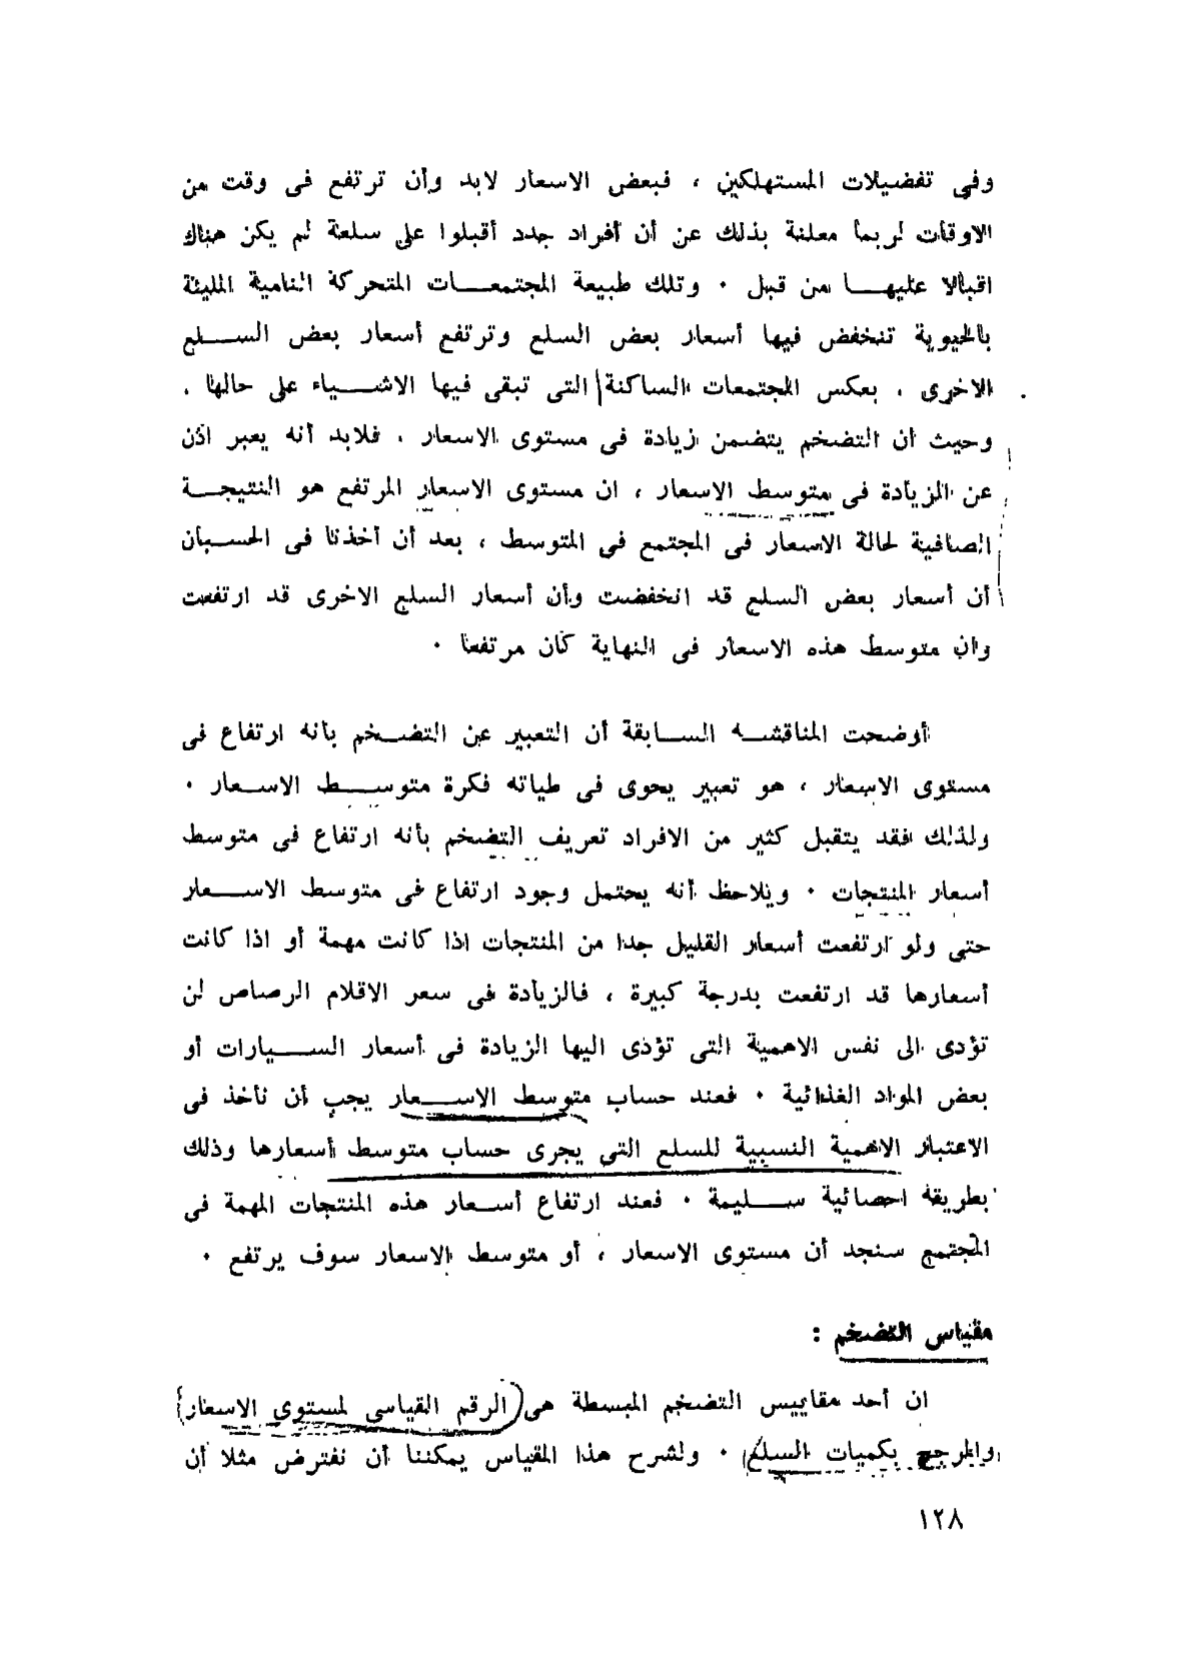 وفى تفضيلات المستهلكين ، فبعض الاسعار لابد وأن ترتفع فى وقت من
الاوقات لربما معلنة بذلك عن أن أفراد جدد أقبلوا على سلعة لم يكن هناك
اقبالا عليهـــا من قبل ٠ وتلك طبيعة المجتمعـــات المتحركة النامية المليئة
بالحيوية تنخفض فيها أسعار بعض السلع وترتفع أسعار بعض الســـلع
الاخرى ، بعكس المجتمعات الساكنة التى تبقى فيها الاشـــياء على حالها .
وحيث ان التضخم يتضمن زيادة فى مستوى الاسعار ، فلابد أنه يعبر اذن
عن الزيادة فى متوسط الاسعار ، ان مستوى الاسعار المرتفع هو النتيجـــة
الصافية لحالة الاسعار فى المجتمع فى المتوسط ، بعد أن أخذنا فى الحسـبان
أن أسعار بعض السلع قد انخفضت وأن أسعار السلع الاخرى قد ارتفعت
وان متوسط هذه الاسعار فى النهاية كان مرتفعا ٠
أوضحت المناقشـــه الســـابقة أن التعبير عن التضـــخم بأنه ارتفاع فى
مستوى الاسعار ، هو تعبير يحوى فى طياته فكرة متوســـط الاســـعار ٠
ولذلك فقد يتقبل كثير من الافراد تعريف التضخم بأنه ارتفاع فى متوسط
أسعار المنتجات ٠ ويلاحظ أنه يحتمل وجود ارتفاع فى متوسط الاســـعار
حتى ولو ارتفعت أسعار القليل جدا من المنتجات اذا كانت مهمة أو اذا كانت
أسعارها قد ارتفعت بدرجة كبيرة ، فالزيادة فى سعر الاقلام الرصاص لن
تؤدى الى نفس الاهمية التى تؤدى اليها الزيادة فى أسعار الســـيارات أو
بعض المواد الغذائية ٠ فعند حساب متوسط الاســـعار يجب أن نأخذ فى
الاعتبار الاهمية النسبية للسلع التى يجرى حساب متوسط أسعارها وذلك
بطريقة احصائية ســـليمة ٠ فعند ارتفاع أسـعار هذه المنتجات المهمة فى
المجتمع سنجد أن مستوى الاسعار ، أو متوسط الاسعار سوف يرتفع ٠
مقياس التضخم :
ان أحد مقاييس التضخم المبسطة هى (الرقم القياسى لمستوى الاسعار)
والمرجح بكميات السلع) ٠ ولشرح هذا المقياس يمكننا أن نفترض مثلا أن
١٢٨